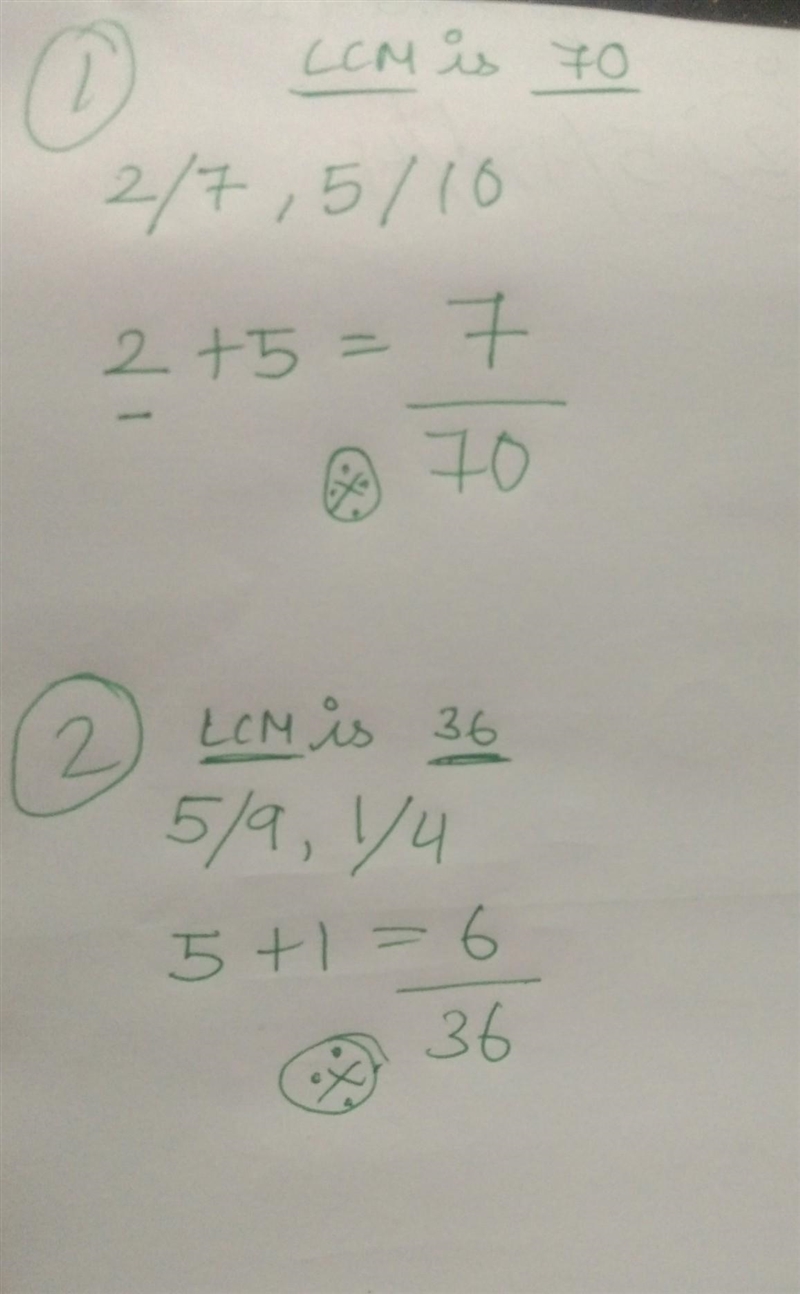 1 LCM is 70
2/7, 5/10
2 + 5 = 7
70
2 LCM is 36
5/9, 1/4
5 + 1 = 6
36